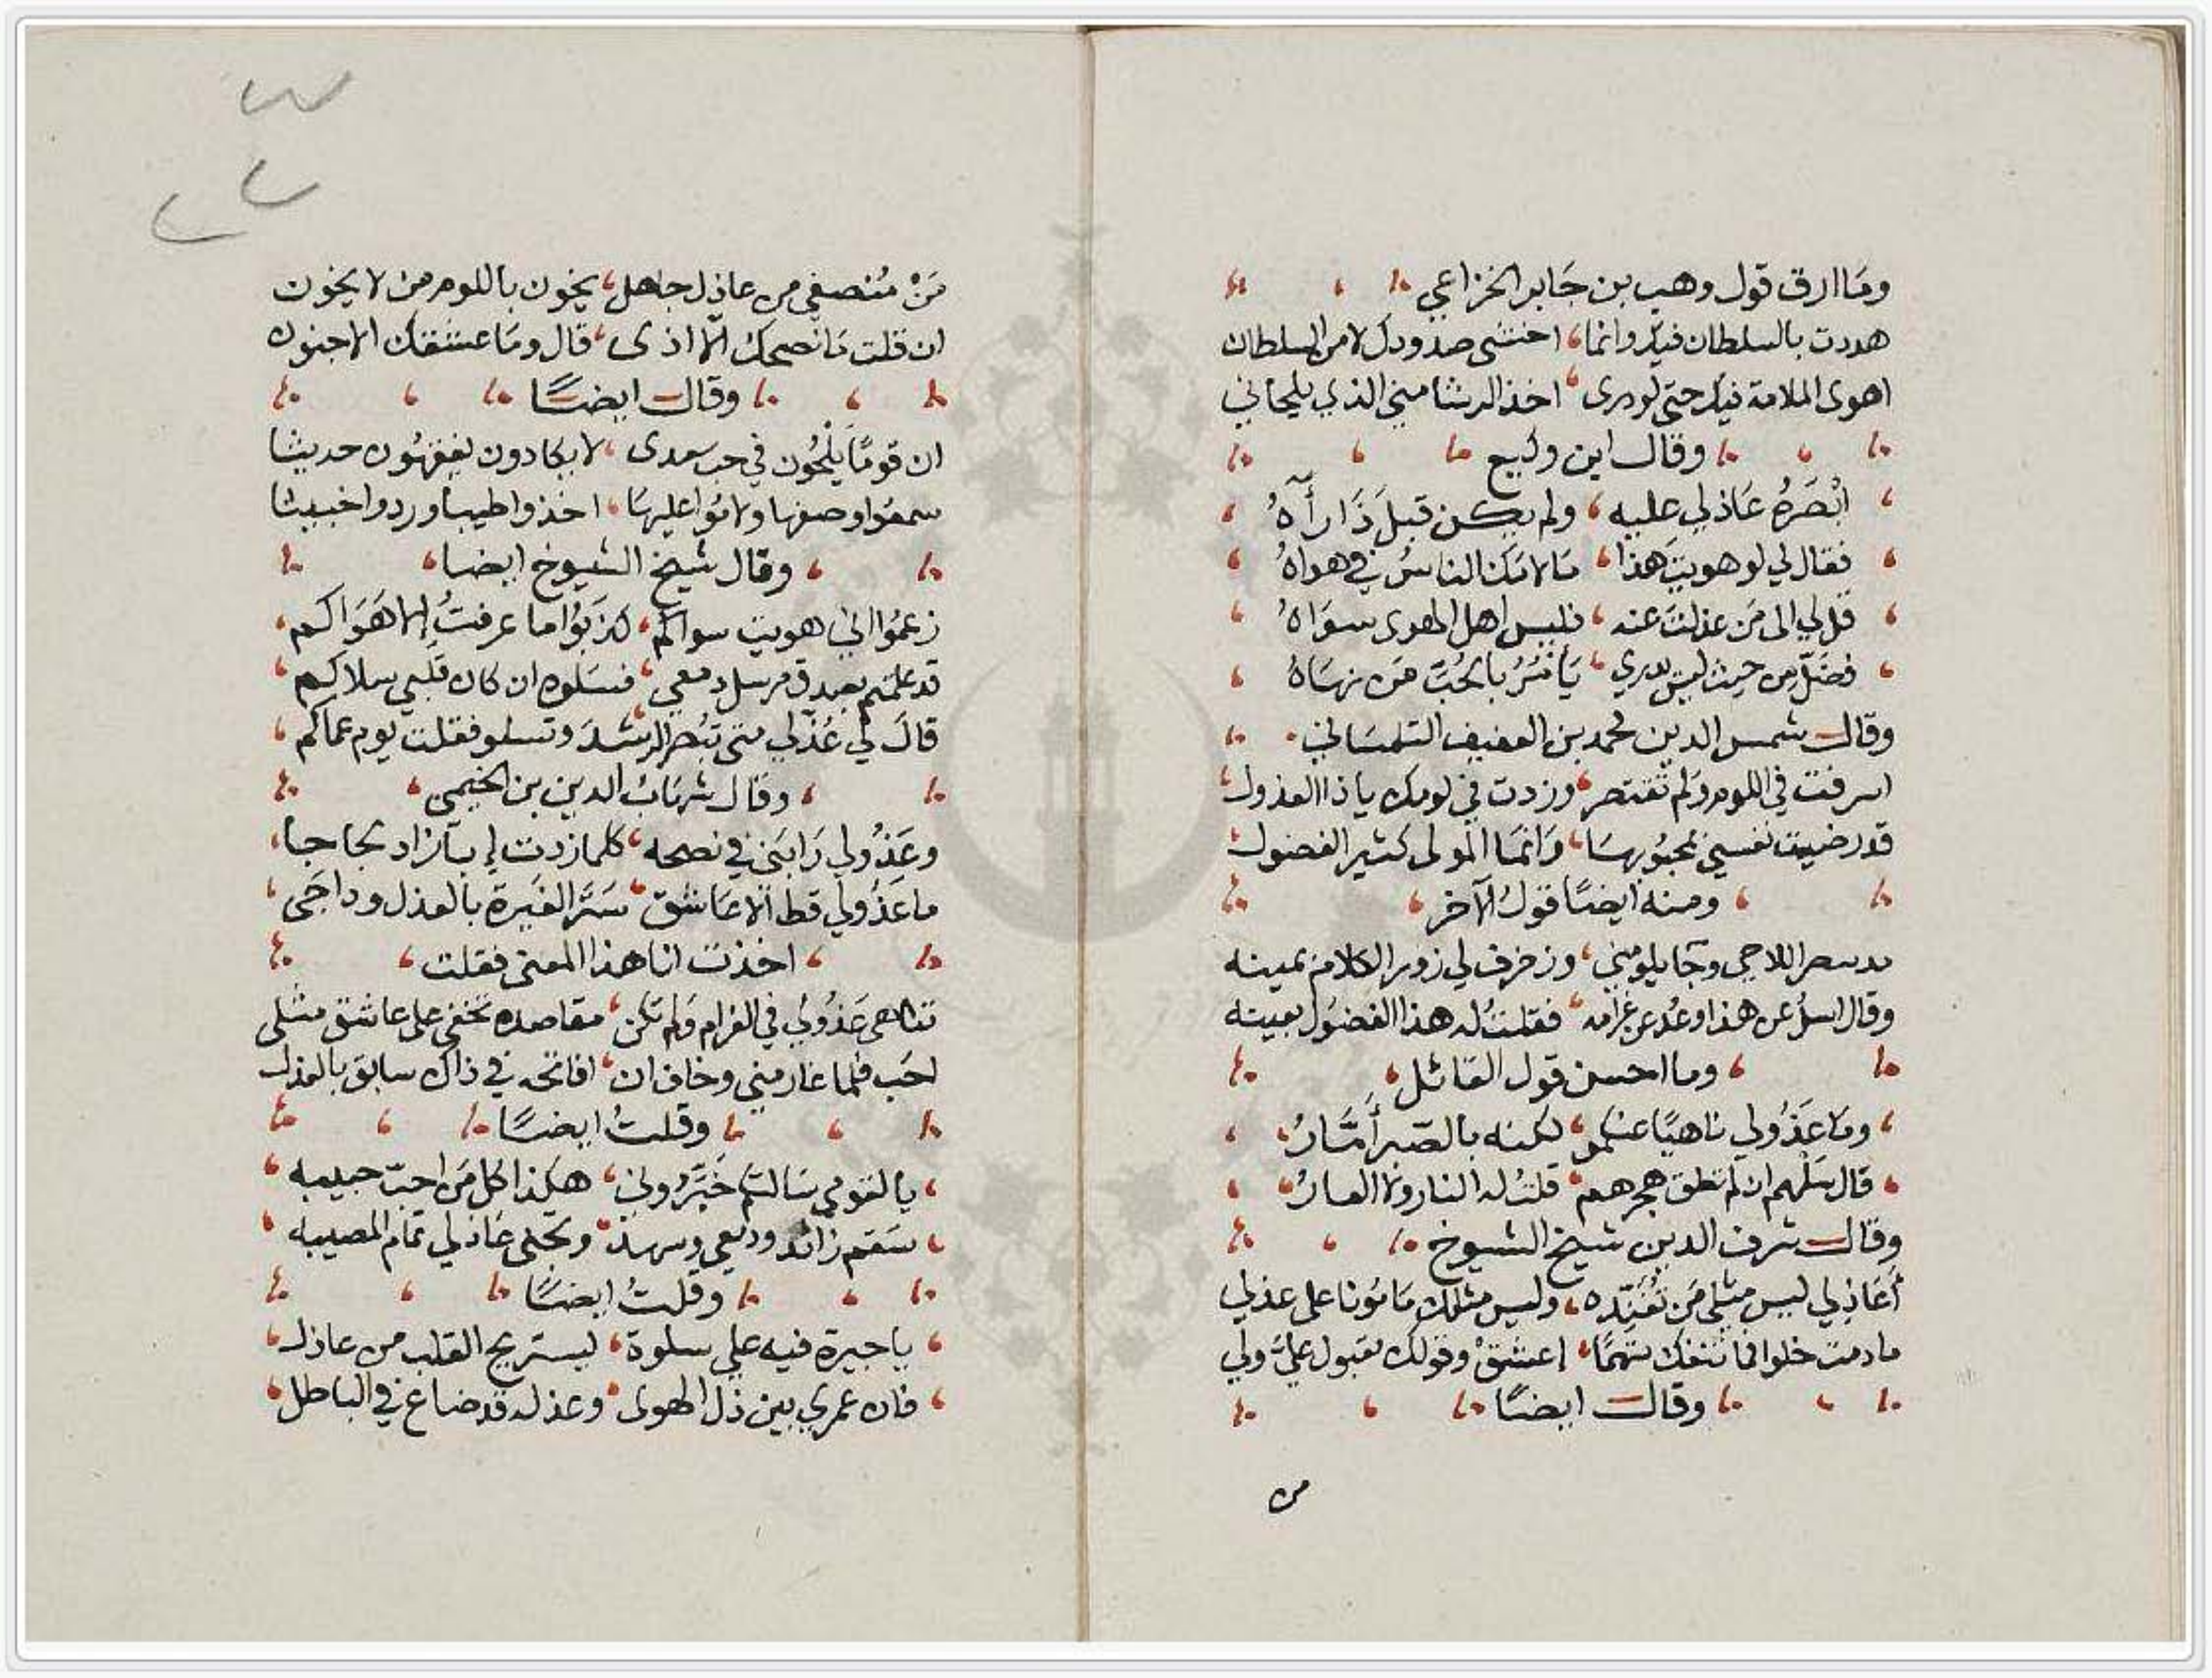 وما ارق قول وهيب بن جابر الخزاعي
هددت بالسلطان فيك وانما اخشى صدودك لا من السلطان
اهوى الملامة فيك حتى لو درى اخذ الرشا مني الذي يلحاني
وقال ابن وكيع
أبْصَرَهُ عَاذلي عليه ولم يكن قبلَ ذَا رَآهُ
فقال لي لو هويتَ هذا مَا لامَكَ الناسُ في هواهُ
قل لي الى مَن عذلتَ عنه فليس اهل الهوى سوَاهُ
فضَلَّ من حيث ليسَ يدري يَأمُرُ بالحُبّ مَن نهَاهُ
وقال شمس الدين محمد بن العفيف التلمسَاني
اسرفت في اللوم ولم تقتصر وزدت في لومك يا ذا العذول
قد رضيت نفسي بمحبُوبهَا وَانمَا المولى كثير الفضول
ومنه ايضًا قولُ الآخر
اللاحي وجَا يلومني وزخرف لي زور الكلام بمينه
وقال اسلُ عن هذا وعُد عن غرامه فقلتُ له هذا الفضُول بعينه
وما احسن قول القائل
ومَا عَذُولي ناهيًا عنكمو لكنه بالصّبر أمَّارُ
قال سَلهم ان لم تطق هجرهم قلتُ له النار ولا العارُ
وقال شرف الدين شيخ الشيوخ
أعَاذلي ليس مثلي مَن تُفَنّده وليس مثلك مَامُونا على عذلي
ما دمت خلوا فما تنفك متهمًا اعشقْ وقولك مقبول عليَّ ولي
وقال ايضًا
من
مَنْ مُنصفي من عاذل جاهل يخون باللوم من لا يخون
ان قلت مَا نصحك الّا اذى قال ومَا عشقك الا جنون
وقال ايضًا
ان قومًا يَلْحُون في حب سعدى لا يكادون يفقهُون حديثا
سمعُوا وصفها ولامُوا عليهَا اخذوا طيبا وردوا خبيثا
وقال شيخ الشيوخ ايضا
زعمُوا اني هويت سواكم كذبُوا ما عرفتُ إلا هَوَاكم
قد علمتم بصدق مرسل دمعي فسَلوه ان كان قلبي سلاكم
قالَ لي عُذّلي متى تبُصر الرشدَ وتسلو فقلت يوم عماكم
وقال شهَابُ الدين بن الخيمي
وعَذُولي رَابَني في نصحه كلما زدت إبآ زاد لجاجا
ما عَذُولي قط الّا عَاشق سَتَر الغَيرة بالعذل وداجَى
اخذت انا هذا المعنى فقلت
تناهى عَذُولي في الغرام ولم تكن مقاصده تخفى على عاشق مثلى
احَب فلما غار مني وخاف ان افاتحه في ذاك سابق بالعذل
وقلتُ ايضًا
يا لقومي سَالتكم خَبَّرُوني هكذا كل مَن احبّ حبيبه
سَقم زائد ودمعي وسهد وتجنى عَاذلي تمام المصيبه
وقلتُ ايضًا
يا حيرة فيه على سلوة ليستريح القلب من عاذل
فان عمري بين ذل الهوى وعذله قد ضاع في الباطل